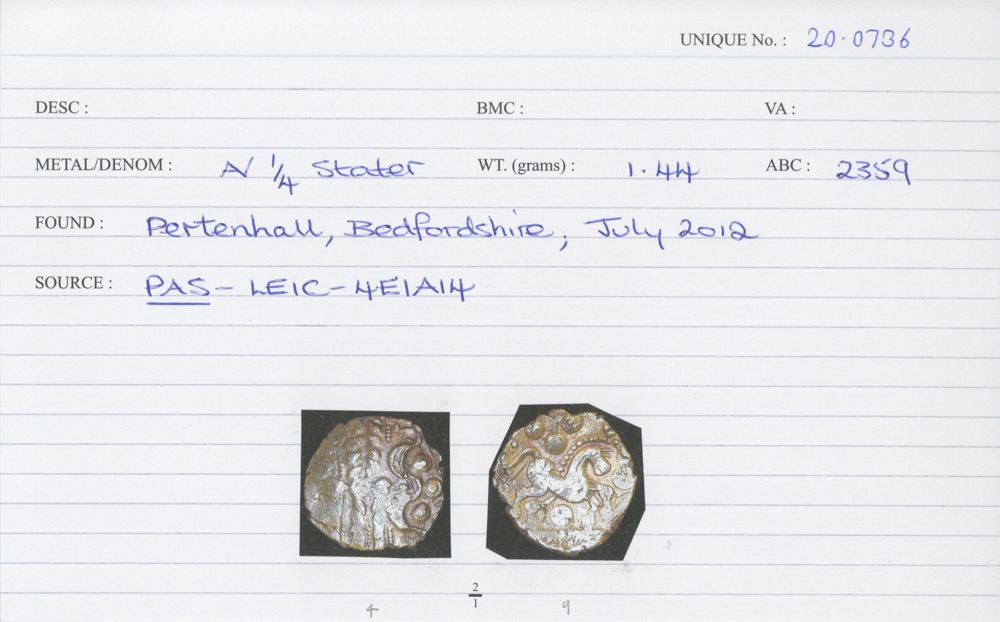 UNIQUE No. : 20.0736
DESC : BMC : VA :
METAL/DENOM : AV 1/4 Stater WT. (grams) : 1.44 ABC : 2359
FOUND : Pertenhall, Bedfordshire, July 2012
SOURCE : PAS - LEIC - 4E1A14
2
1
4 9